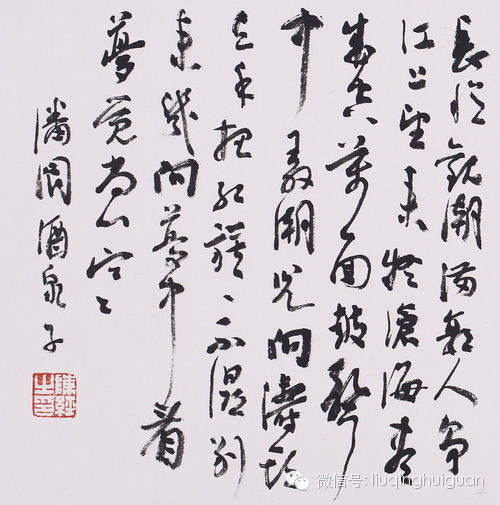 長憶觀潮滿郭人爭
江上望來疑滄海盡
成空萬面鼓聲
中 弄潮兒向濤頭
立手把红旗〻不濕别
来幾向夢中看
夢覺尚心寒
潘閬酒泉子
微信号: liuqinghuiguan